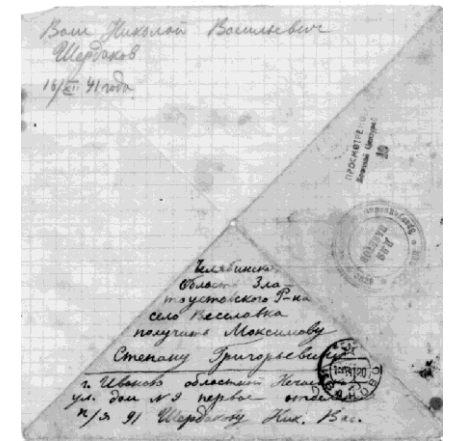 Ваш Николай Васильевич
Щербаков
16/XII 41 года
ПРОСМОТРЕНО
Военной Цензурой
10
ДЛЯ
ПАКЕТОВ
Челябинск
Область Зла-
тоустовского Р-на
село Веселовка
получить Максимову
Степану Григорьевичу
г. Иваново областной
ул. дом № 9 первое
п/я 91 Щербакову Ник. Вас.
ИВАНОВО